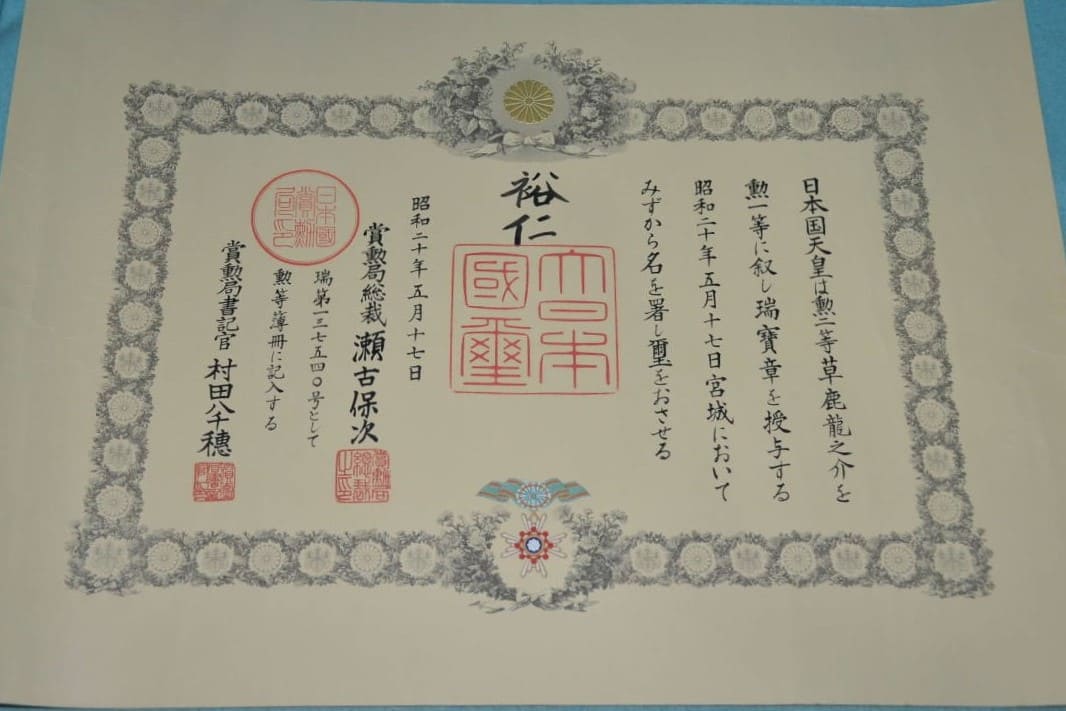 日本国天皇は勲二等草鹿龍之介を
勲一等に叙し瑞寶章を授与する
昭和二十年五月十七日宮城において
みずから名を署し璽をおさせる
裕仁
大日本
國璽
昭和二十年五月十七日
賞勲局総裁 瀬古保次
瑞第一三七五四〇号として
勲等簿冊に記入する
賞勲局書記官 村田八千穂
日本國
賞勲
局印